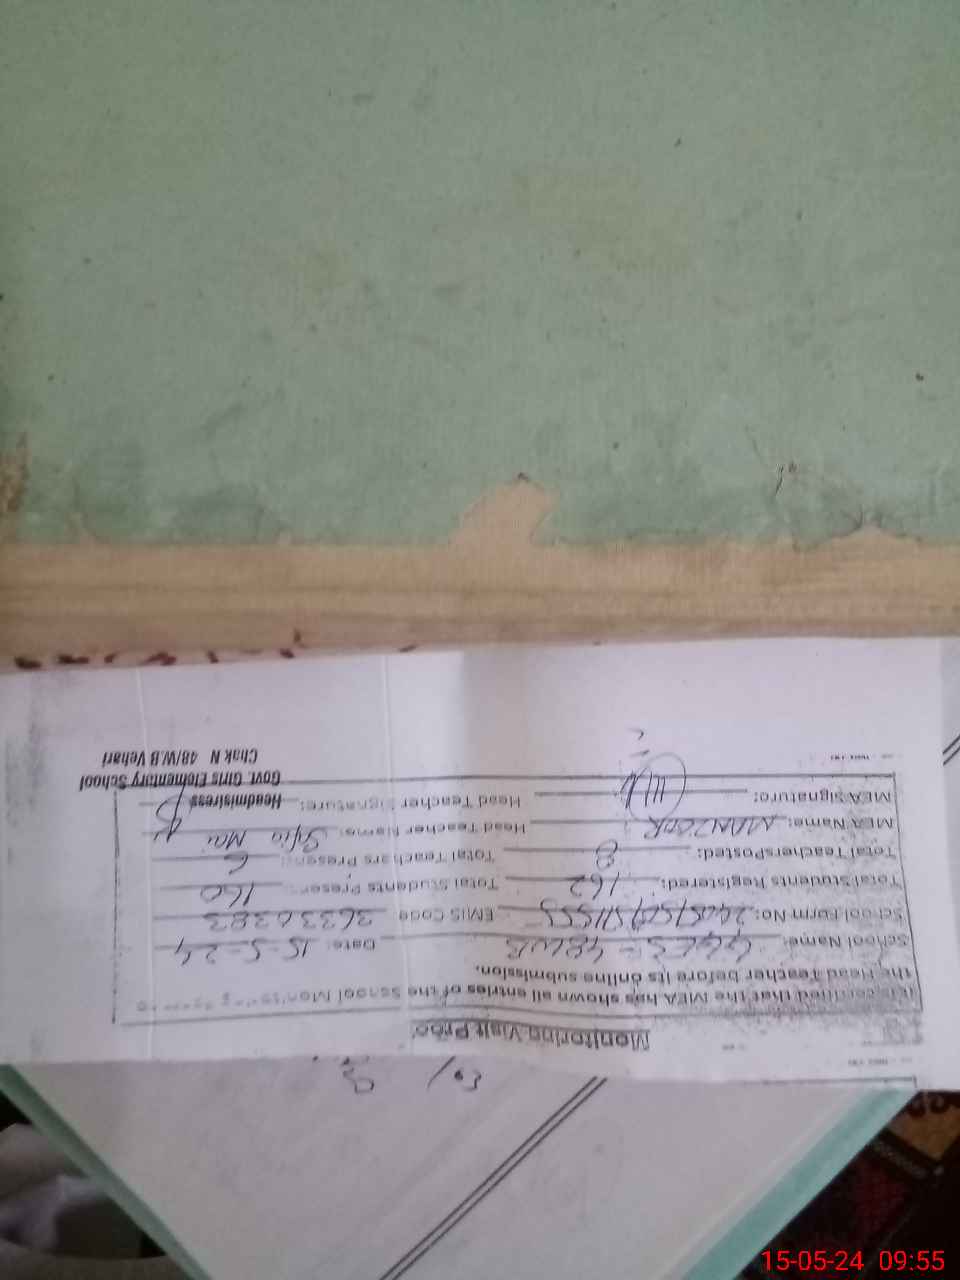 Monitoring Visit Proo
It is certified that the MEA has shown all entries of the School Monitoring
the Head Teacher before its online submission.
School Name: GGES 48WB Date: 15-5-24
School Form No: EMIS Code 36330383
Total Students Registered: 162 Total Students Present: 160
Total Teachers Posted: 8 Total Teachers Present: 6
MEA Name: MANZOOR Head Teacher Name: Sofia Mai
MEA Signature: Head Teacher Signature:
Headmistress
Govt. Girls Elementary School
Chak N 48/W.B Vehari
15-05-24 09:55